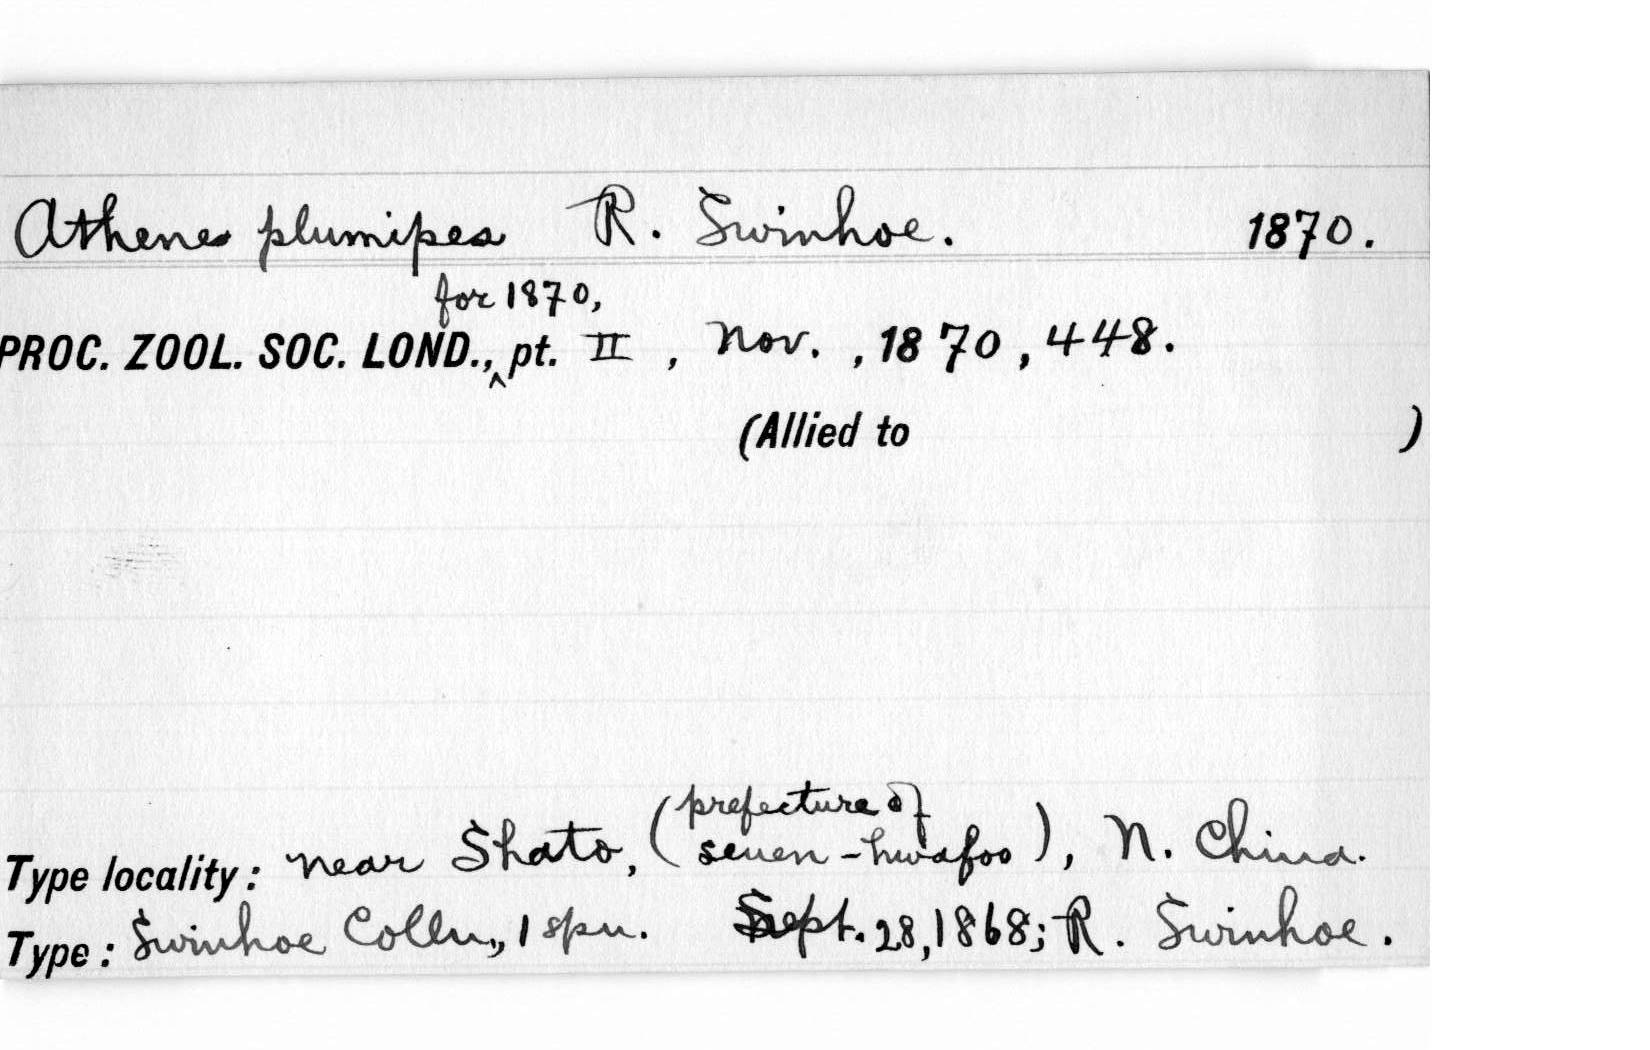 Athene plumipes R. Swinhoe. 1870.
for 1870,
PROC. ZOOL. SOC. LOND., ^ pt. II , Nov. , 1870 , 448.
(Allied to )
prefecture of
Type locality : near Shato, ( seuen-hwafoo ), N. China.
Type : Swinhoe Colln., 1 spn. Sept. 28, 1868; R. Swinhoe.